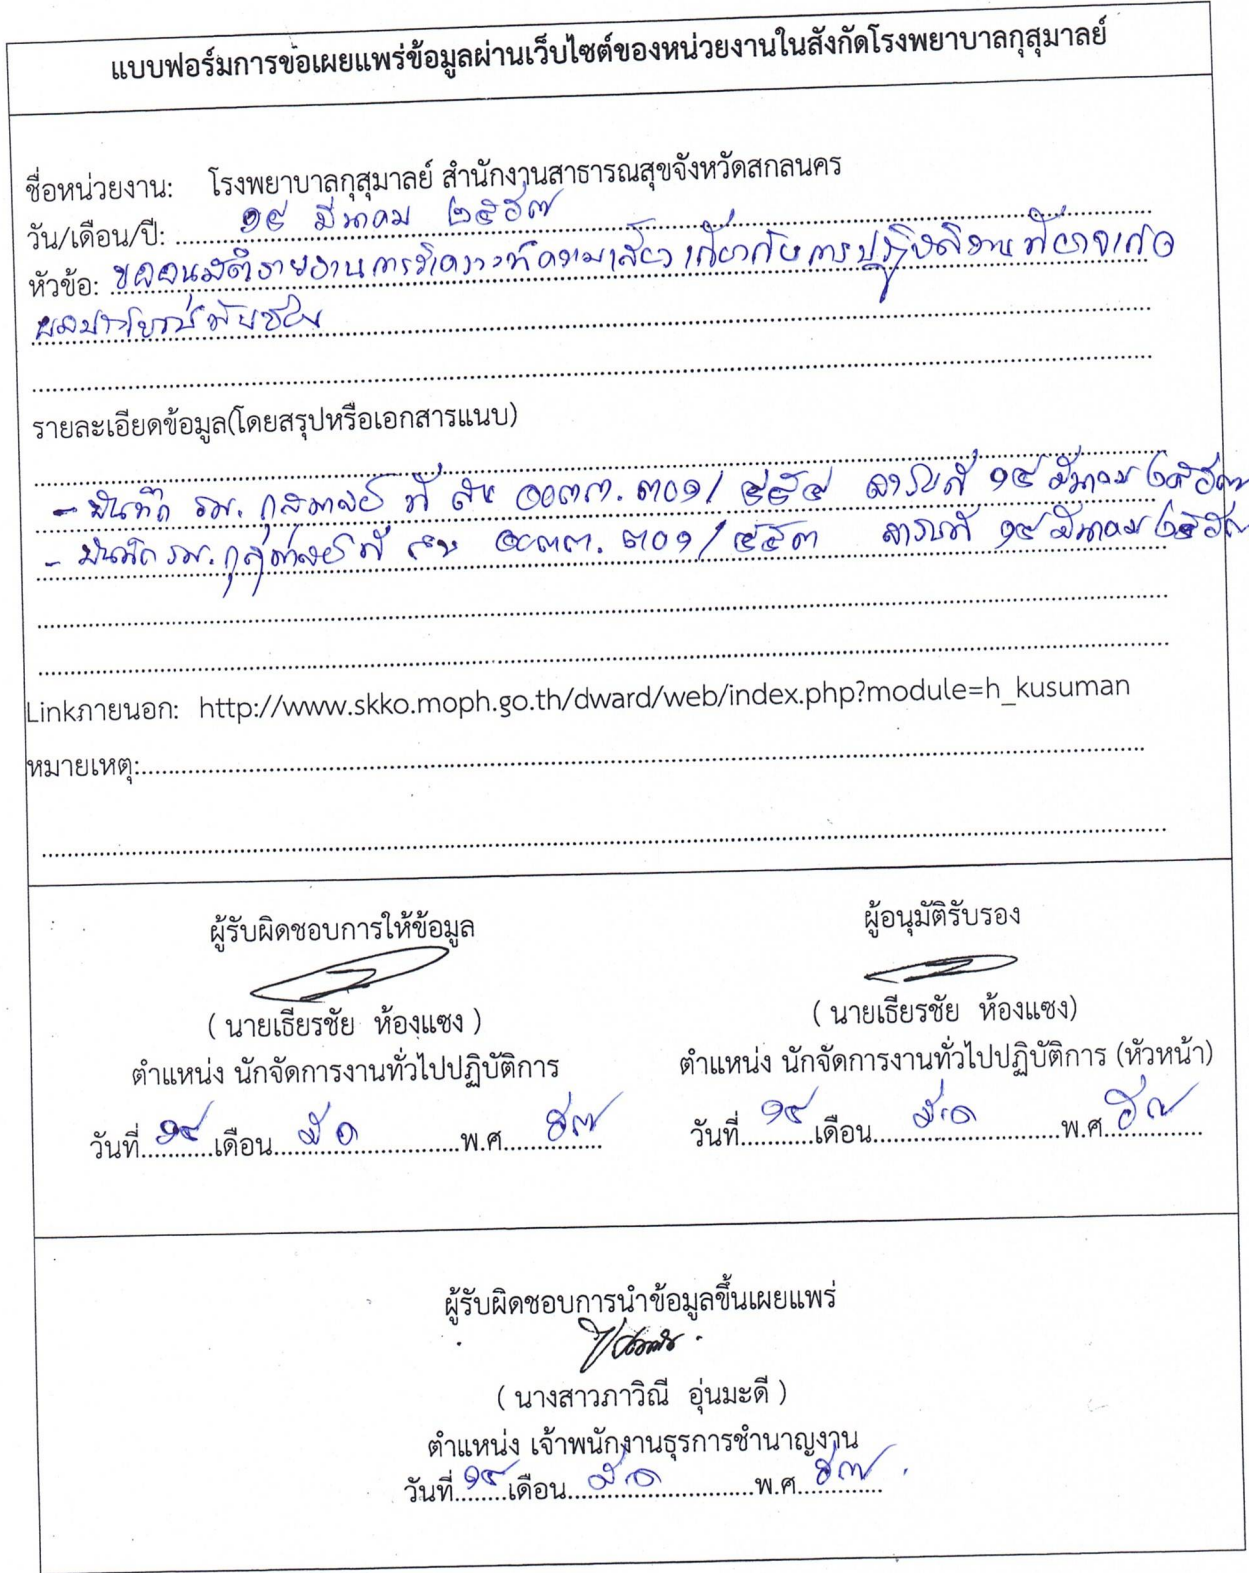 แบบฟอร์มการขอเผยแพร่ข้อมูลผ่านเว็บไซต์ของหน่วยงานในสังกัดโรงพยาบาลกุสุมาลย์
ชื่อหน่วยงาน: โรงพยาบาลกุสุมาลย์ สำนักงานสาธารณสุขจังหวัดสกลนคร
วัน/เดือน/ปี: ๑๔ มีนาคม ๒๕๖๗
หัวข้อ: ขออนุมัติรายงานการวิเคราะห์ความเสี่ยงเกี่ยวกับการปฏิบัติงานที่อาจเกิด
ผลประโยชน์ทับซ้อน
รายละเอียดข้อมูล(โดยสรุปหรือเอกสารแนบ)
- บันทึก รพ. กุสุมาลย์ ที่ สน ๐๐๓๓.๓๐๑/ ลงวันที่ ๑๔ มีนาคม ๒๕๖๗
- บันทึก รพ. กุสุมาลย์ ที่ สน ๐๐๓๓.๓๐๑/ ลงวันที่ ๑๔ มีนาคม ๒๕๖๗
Linkภายนอก: http://www.skko.moph.go.th/dward/web/index.php?module=h_kusuman
หมายเหตุ:
ผู้รับผิดชอบการให้ข้อมูล
( นายเธียรชัย ห้องแซง )
ตำแหน่ง นักจัดการงานทั่วไปปฏิบัติการ
วันที่ ๑๔ เดือน มี.ค พ.ศ. ๖๗
ผู้อนุมัติรับรอง
( นายเธียรชัย ห้องแซง)
ตำแหน่ง นักจัดการงานทั่วไปปฏิบัติการ (หัวหน้า)
วันที่ ๑๔ เดือน มี.ค พ.ศ. ๖๗
ผู้รับผิดชอบการนำข้อมูลขึ้นเผยแพร่
( นางสาวภาวิณี อุ่นมะดี )
ตำแหน่ง เจ้าพนักงานธุรการชำนาญงาน
วันที่ ๑๔ เดือน มี.ค พ.ศ. ๖๗